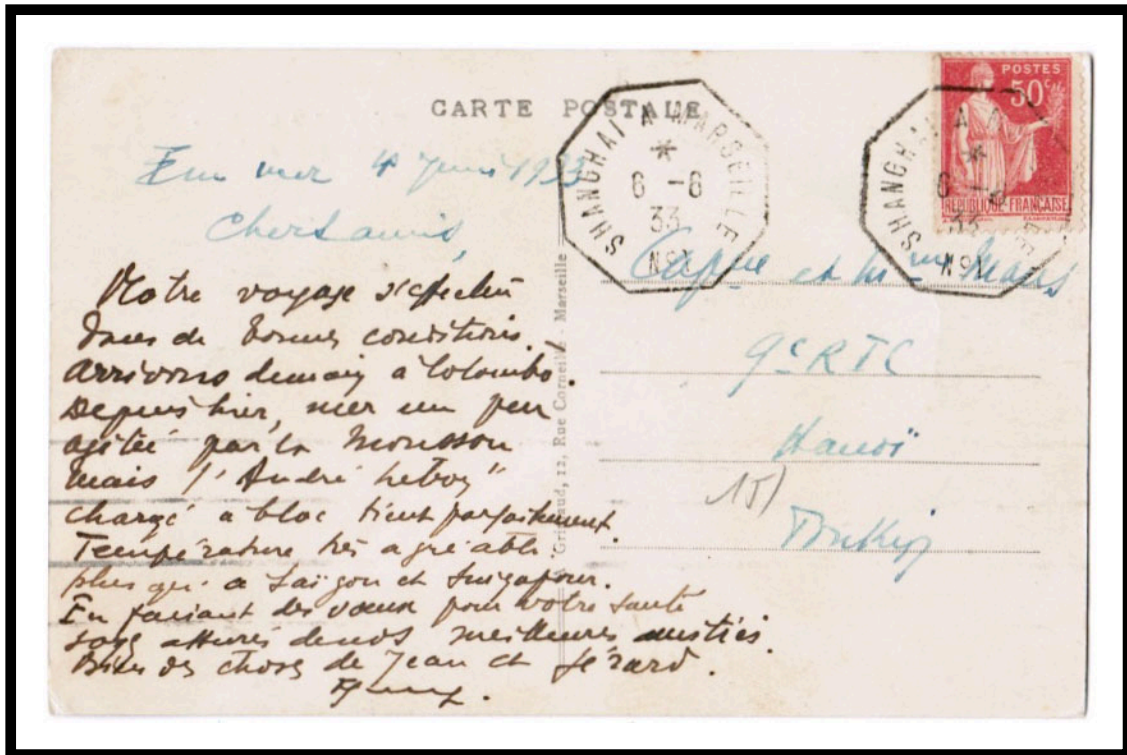 CARTE POSTALE
SHANGHAI A MARSEILLE
*
6 -6
33
N°1
POSTES
50c
REPUBLIQUE FRANÇAISE
SHANGHAI A M LE
*
6 -
33
N°1
En mer 4 Juin 1933
Chers amis,
Notre voyage s'effectue
dans de bonnes conditions.
Arrivons demain à Colombo.
Depuis hier, mer un peu
agitée par la mousson
mais l'"André Lebon"
chargé à bloc tient parfaitement.
Température très agréable
plus qu'à Saïgon et Singapour.
En faisant des vœux pour votre santé
soyez assurés de nos meilleures amitiés.
Bien des choses de Jean et Gérard.
Grimaud, 12, Rue Corneille - Marseille
Capne et Mme
9e RTC
Hanoï
15)
Tonkin